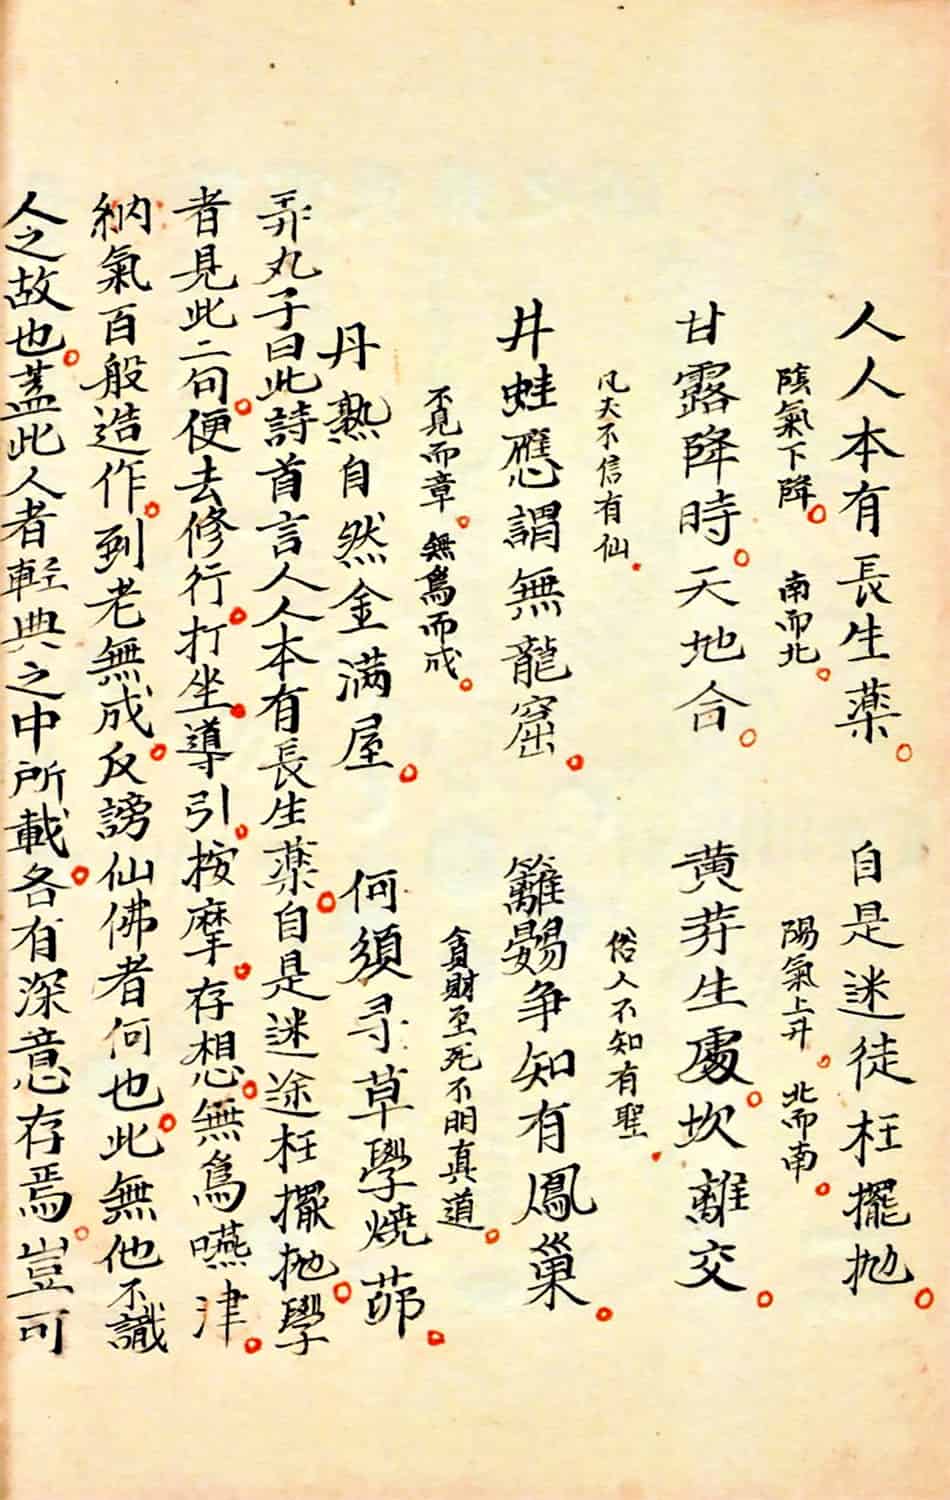 人人本有長生薬。自是迷徒枉擺抛。
陰氣下降。南而北。陽氣上升。北而南。
甘露降時。天地合。黄芽生處。坎離交。
凡夫不信有仙。俗人不知有聖。
井蛙應謂無龍窟。籬鷃争知有鳳巢。
不見而章。無爲而成。貪財至死不明真道。
丹熟自然金滿屋。何須寻草學燒茆。
弄丸子曰此詩首言人人本有長生薬。自是迷途枉擺抛。學
者見此二句。便去修行。打坐。導引。按摩。存想。無爲嚥津。
納氣百般造作。到老無成。反謗仙佛者何也。此無他不識
人之故也。蓋此人者輕典之中所載。各有深意存焉。豈可